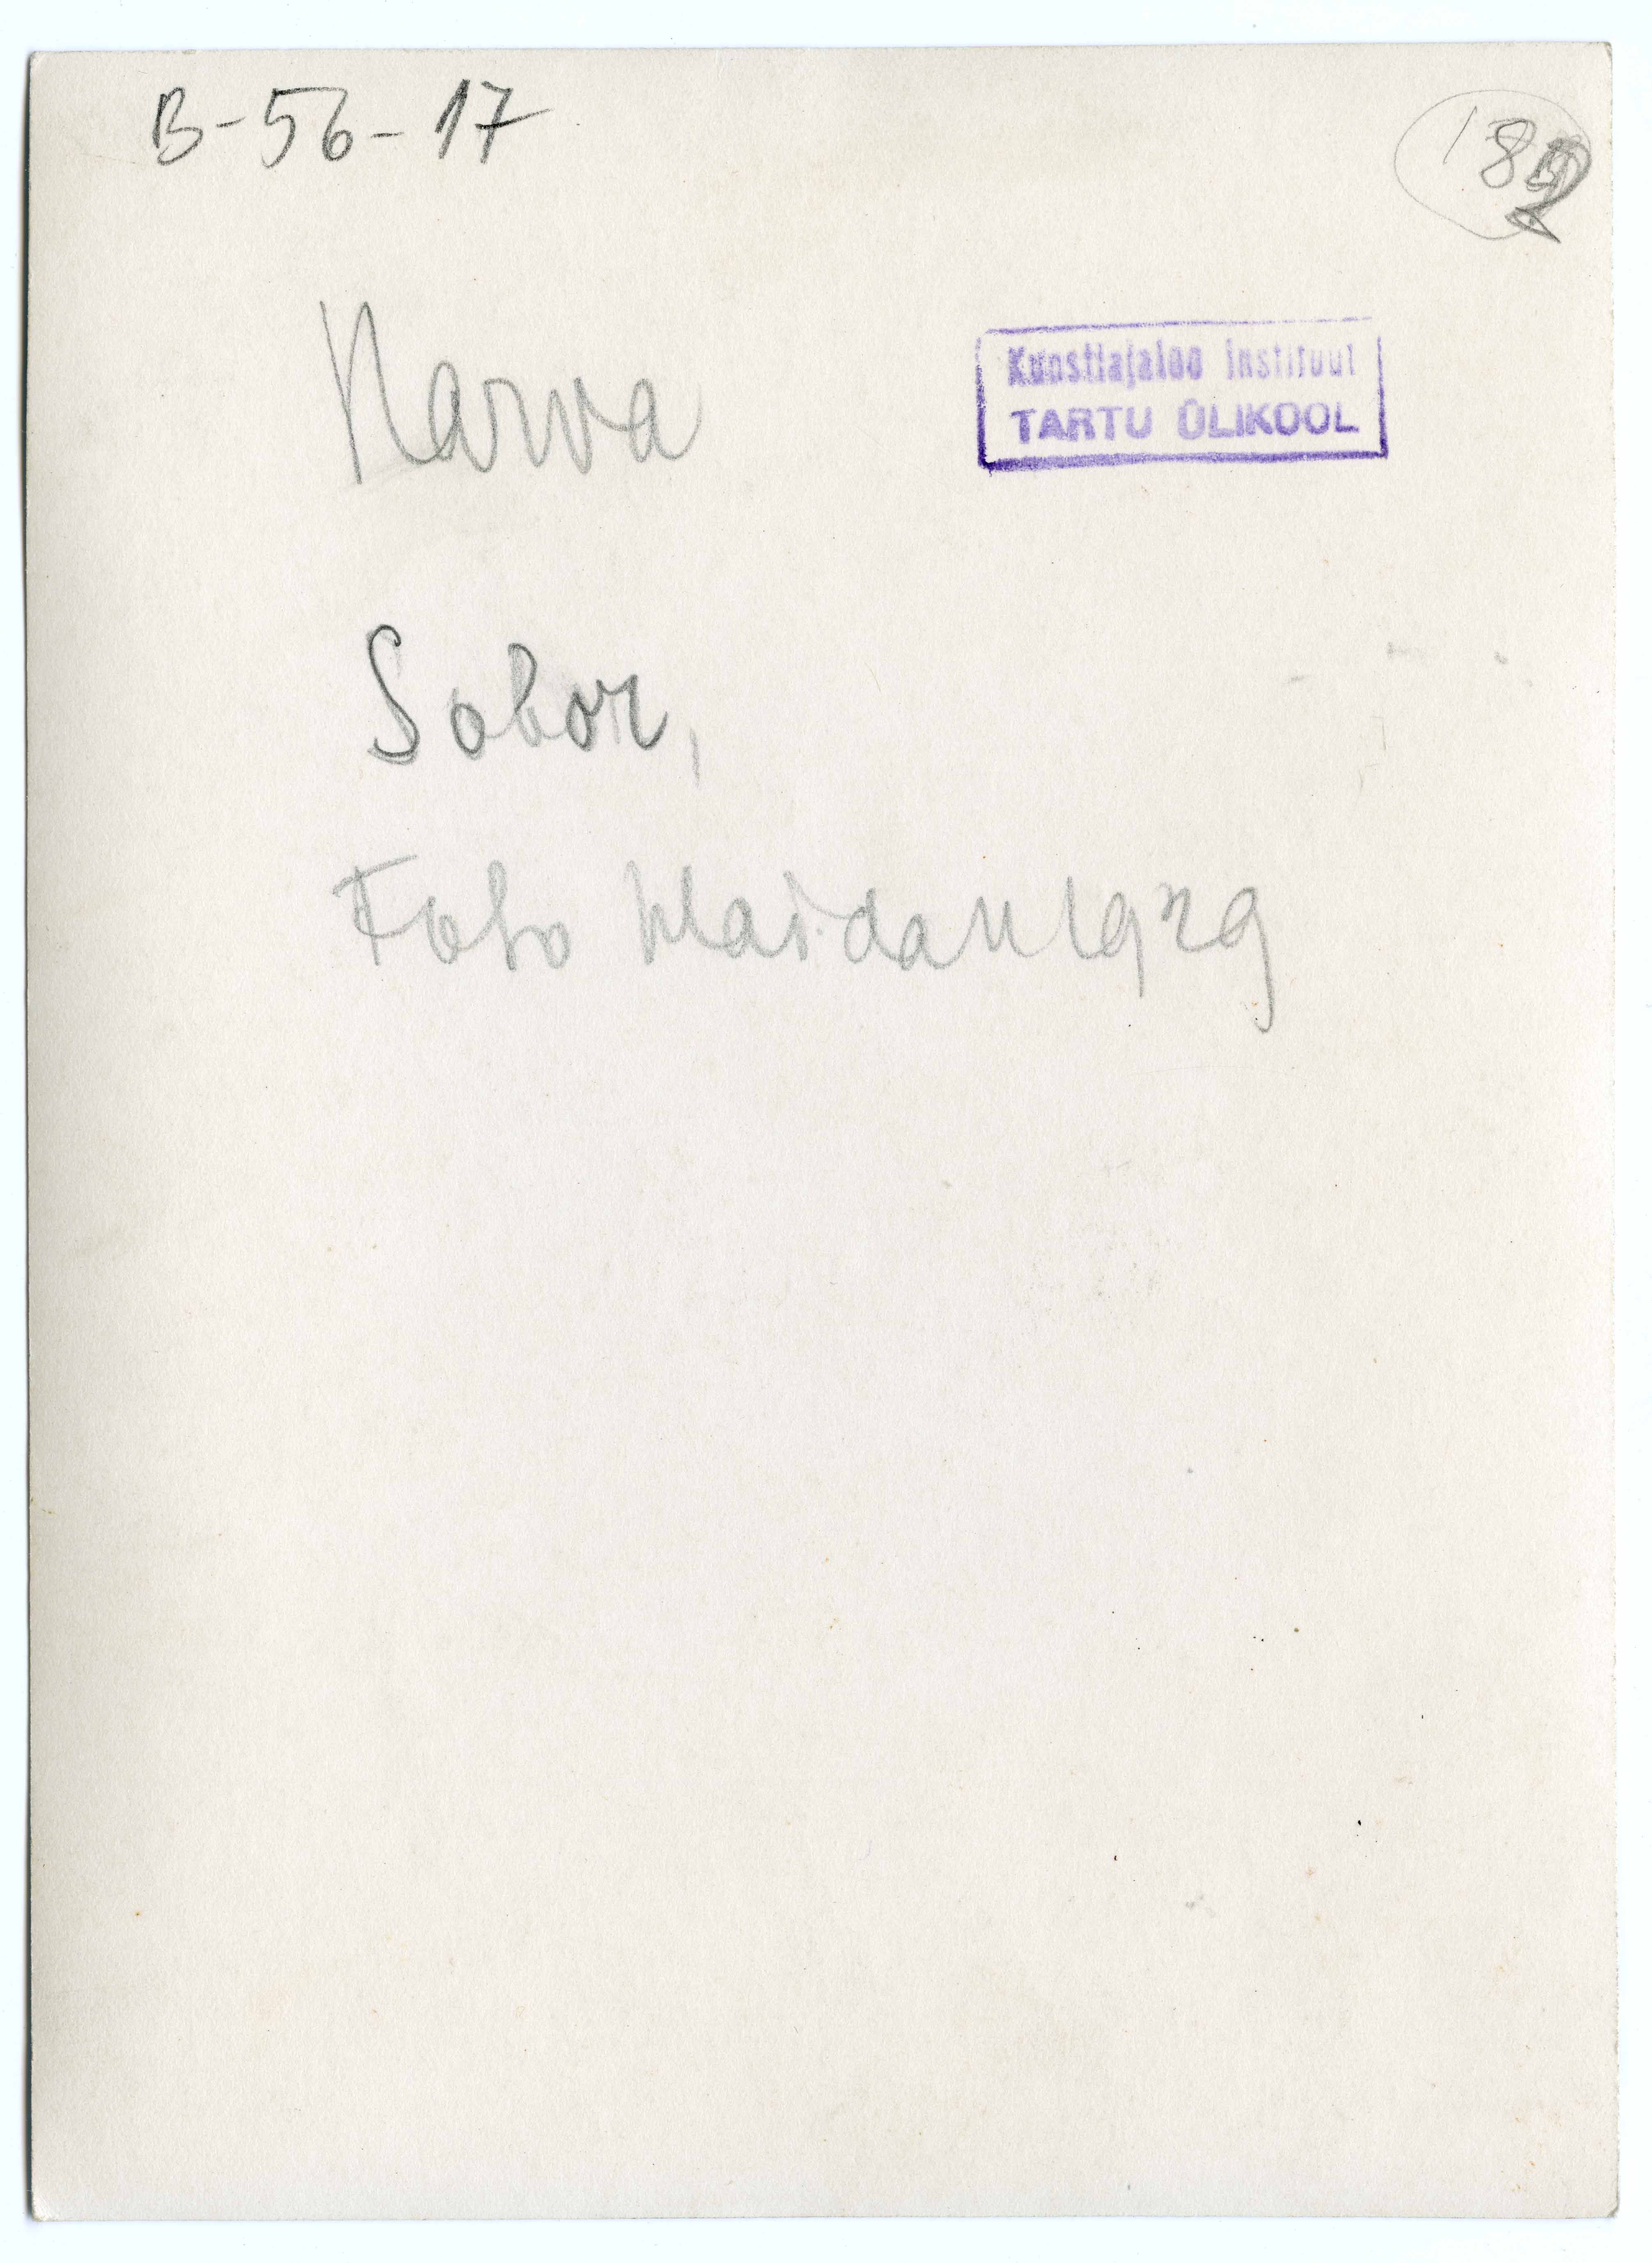 B-56-17
182
Narva
Kunstiajaloo Instituut
TARTU ÜLIKOOL
Sobor,
Foto Maidan 1929